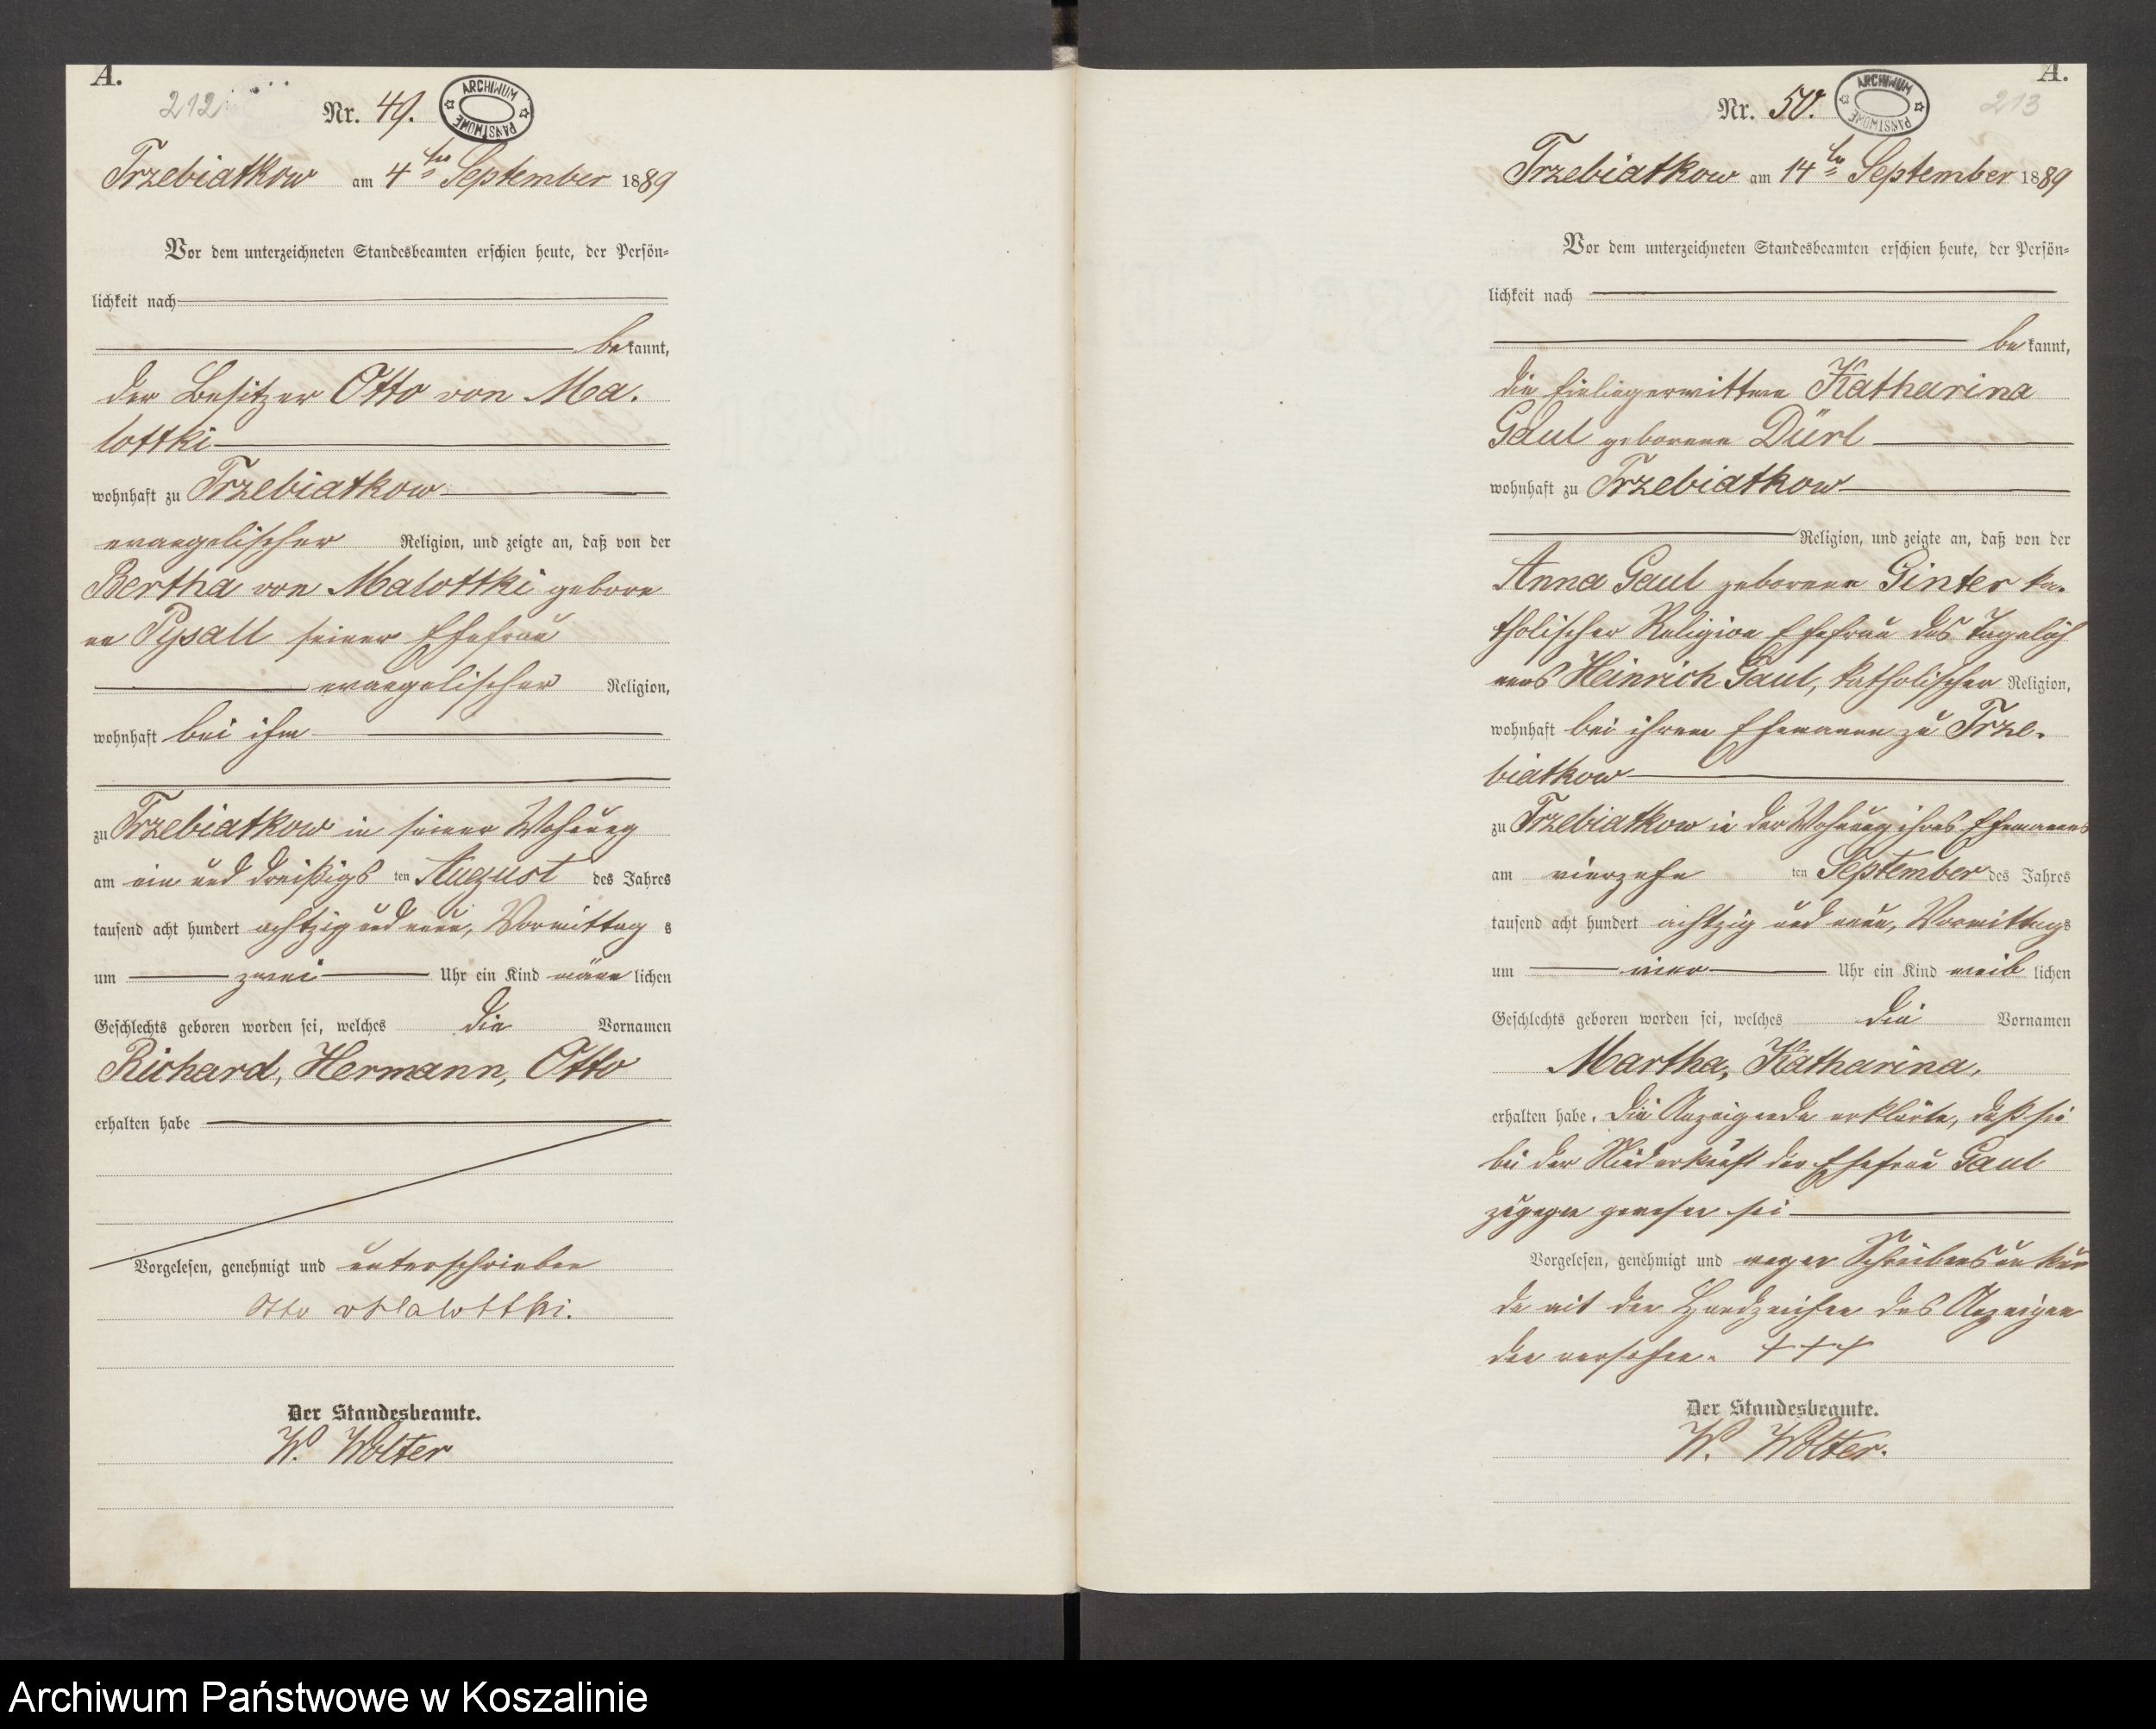 A.
212
Nr. 49.
ARCHIWUM PAŃSTWOWE
Trzebiatkow am 4ten September 1889
Vor dem unterzeichneten Standesbeamten erschien heute, der Persön-
lichkeit nach
bekannt,
der Besitzer Otto von Ma.
lottki
wohnhaft zu Trzebiatkow
evangelischer Religion, und zeigte an, daß von der
Bertha von Malottki gebore
ne Pysall seiner Ehefrau
evangelischer Religion,
wohnhaft bei ihm
zu Trzebiatkow in seiner Wohnung
am ein und dreißigs ten August des Jahres
tausend acht hundert achtzig und neun, Vormittag s
um zwei Uhr ein Kind männ lichen
Geschlechts geboren worden sei, welches die Vornamen
Richard, Hermann, Otto
erhalten habe
Vorgelesen, genehmigt und unterschrieben
Otto v Malottki.
Der Standesbeamte.
W. Wolter
A.
213
Nr. 50.
ARCHIWUM PAŃSTWOWE
Trzebiatkow am 14ten September 1889
Vor dem unterzeichneten Standesbeamten erschien heute, der Persön-
lichkeit nach
bekannt,
die Einliegerwittwe Katharina
Gaul geborene Dürl
wohnhaft zu Trzebiatkow
Religion, und zeigte an, daß von der
Anna Gaul geborene Ginter ka.
tholischer Religion Ehefrau des Tagelöh
ners Heinrich Gaul, katholischer Religion,
wohnhaft bei ihrem Ehemanne zu Trze.
biatkow
zu Trzebiatkow in der Wohnung ihres Ehemannes
am vierzehn ten September des Jahres
tausend acht hundert achtzig und neun, Vormittags
um vier Uhr ein Kind weib lichen
Geschlechts geboren worden sei, welches die Vornamen
Martha, Katharina,
erhalten habe. Die Anzeigende erklärte, daß sie
bei der Niederkunft der Ehefrau Gaul
zugegen gewesen sei
Vorgelesen, genehmigt und wegen Schreibensunkun
de mit den Handzeichen des Anzeigen
den versehen. +++
Der Standesbeamte.
W. Wolter.
Archiwum Państwowe w Koszalinie